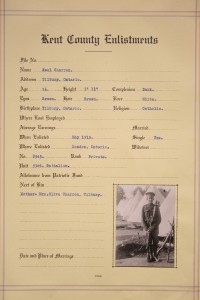 Kent County Enlistments
File No.
Name
Address Tilbury, Ontario.
Age Height Complexion Dark.
Eyes Brown. Hair Brown. Race White.
Birthplace Tilbury, Ontario. Religion Catholic.
Where Last Employed
Average Earnings Married
When Enlisted May 1916. Single Yes.
Where Enlisted London, Ontario. Widower
No. Rank Private.
Unit Battalion.
Allowance from Patriotic Fund
Next of Kin
Mother- Mrs. Tilbury.
Date and Place of Marriage